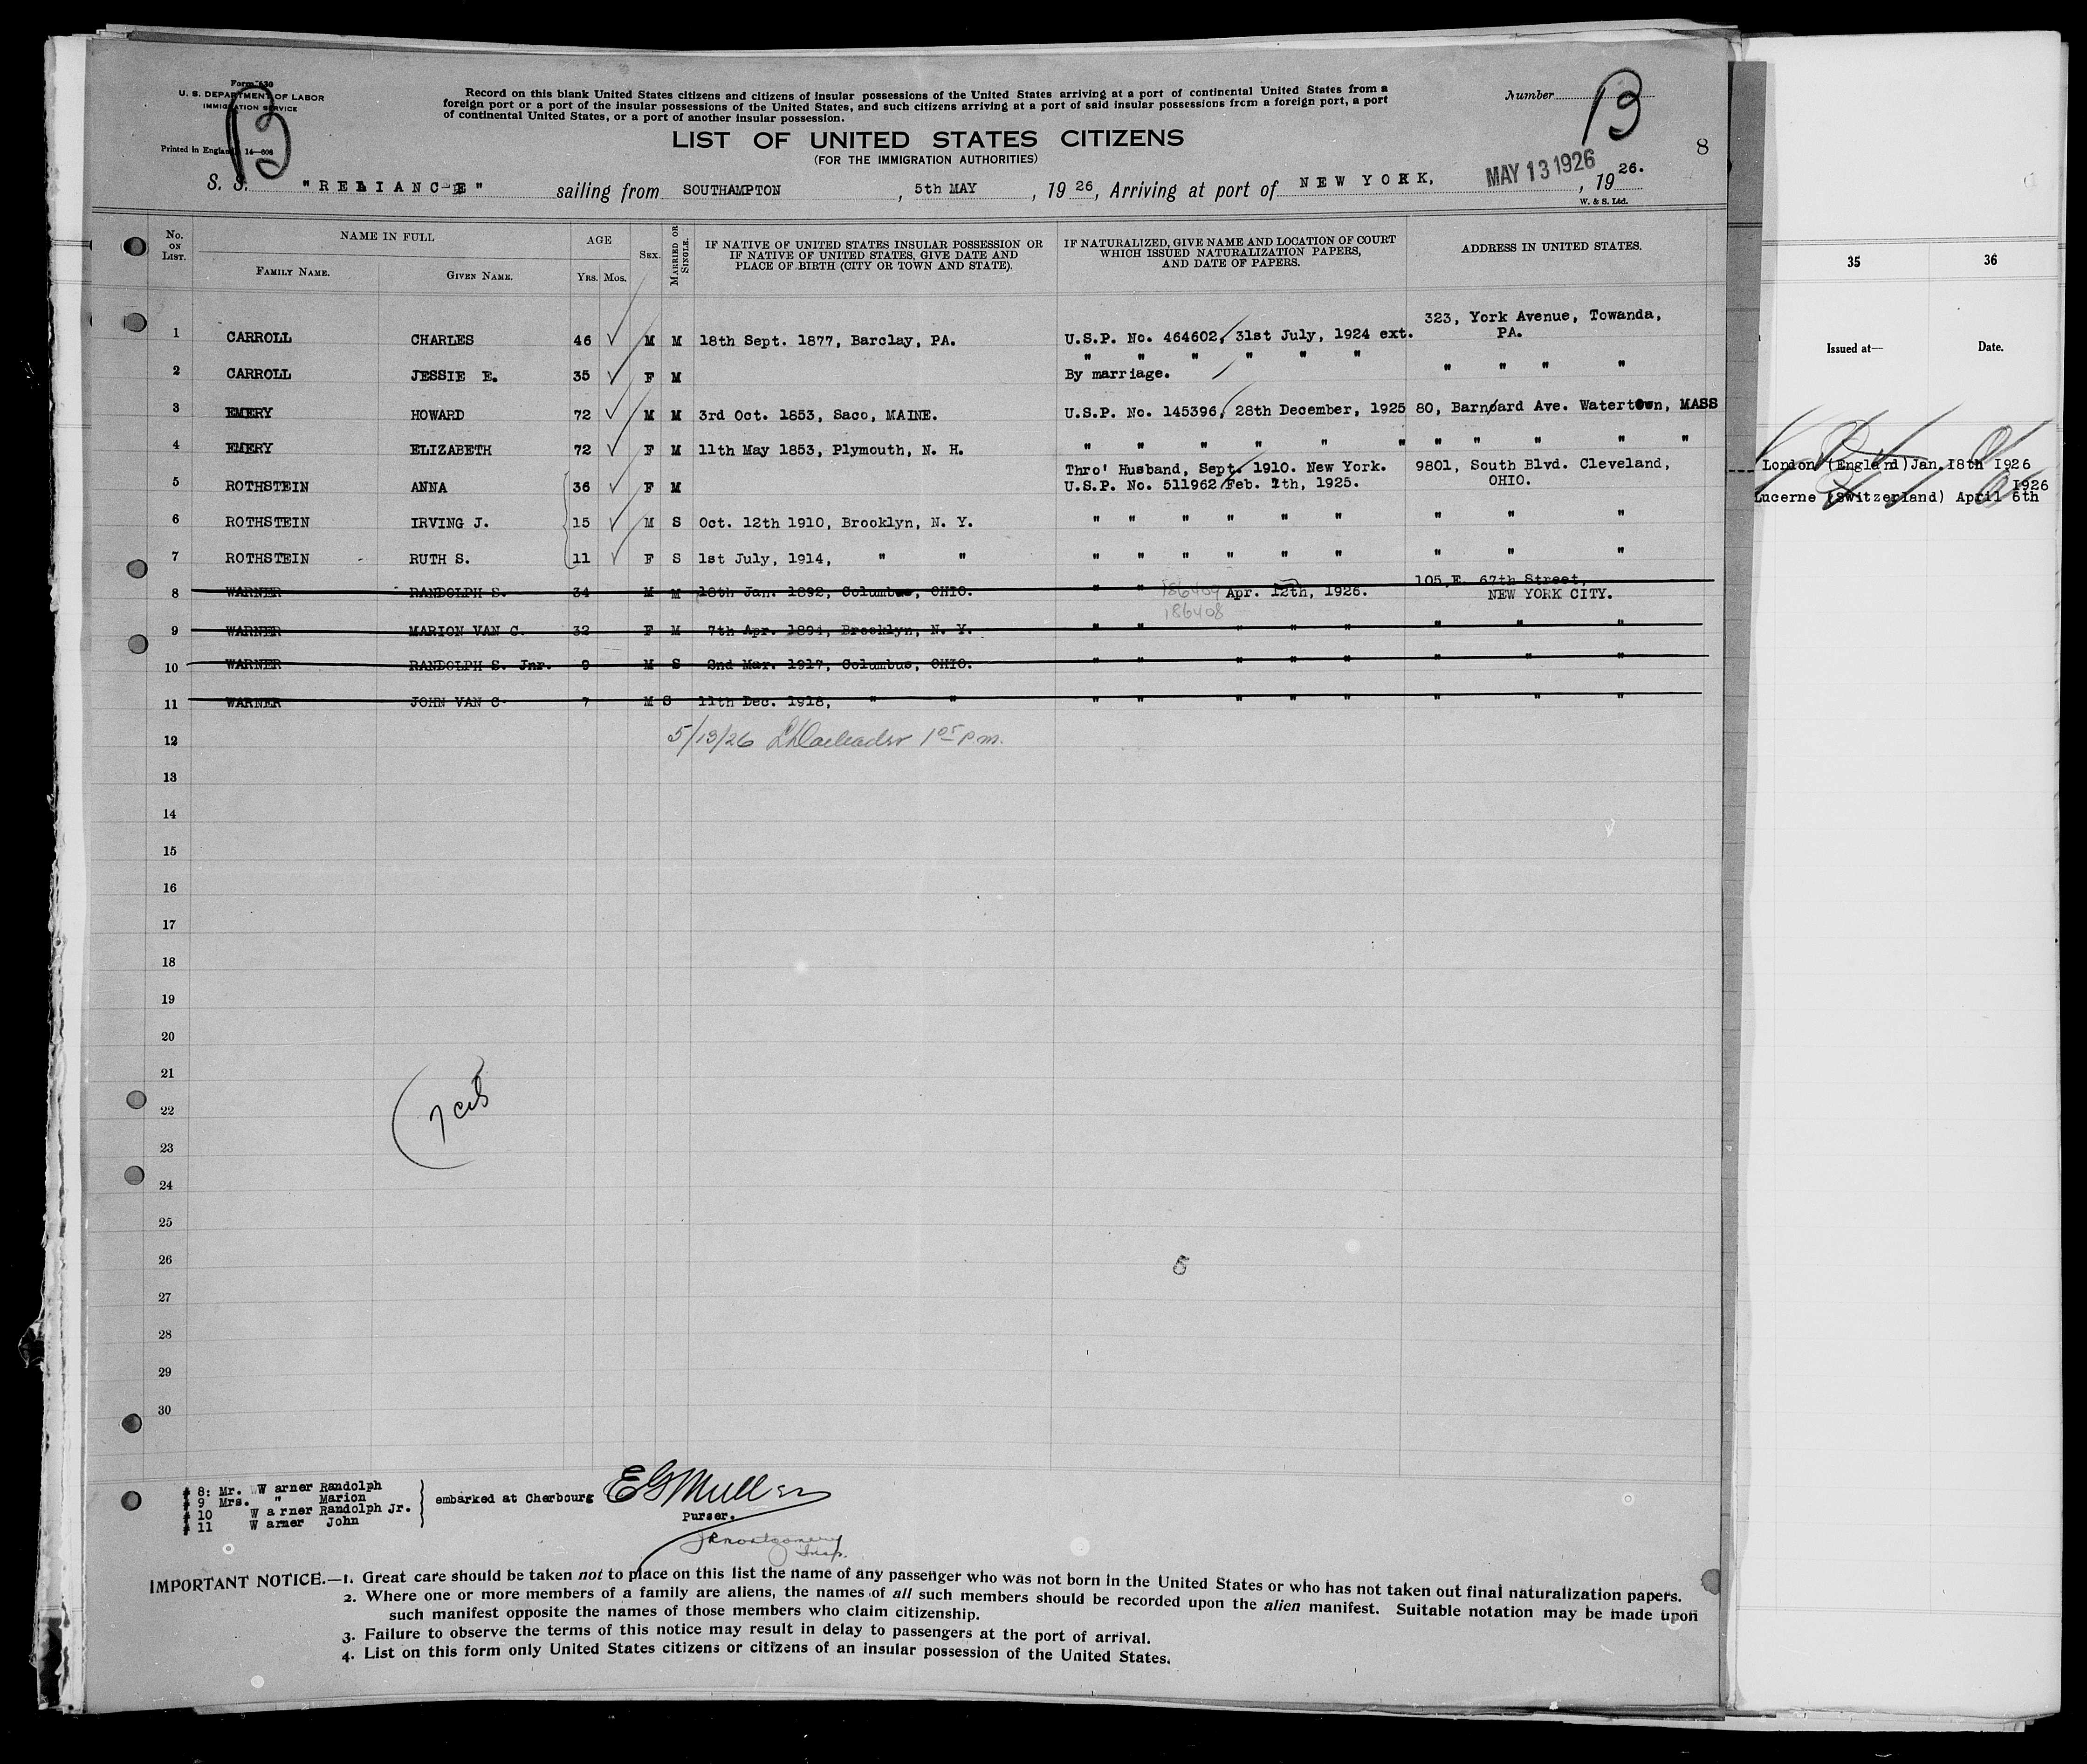 Form 630
U. S. DEPARTMENT OF LABOR
IMMIGRATION SERVICE
B
Printed in England. 14—608
Record on this blank United States citizens and citizens of insular possessions of the United States arriving at a port of continental United States from a
foreign port or a port of the insular possessions of the United States, and such citizens arriving at a port of said insular possessions from a foreign port, a port
of continental United States, or a port of another insular possession.
Number
B
8
LIST OF UNITED STATES CITIZENS
(FOR THE IMMIGRATION AUTHORITIES)
S. S. "RELIANCE" sailing from SOUTHAMPTON, 5th MAY, 1926, Arriving at port of NEW YORK, MAY 13 1926, 1926.
W. & S. Ltd.
No. ON LIST. NAME IN FULL AGE SEX. MARRIED OR SINGLE. IF NATIVE OF UNITED STATES INSULAR POSSESSION OR IF NATIVE OF UNITED STATES, GIVE DATE AND PLACE OF BIRTH (CITY OR TOWN AND STATE). IF NATURALIZED, GIVE NAME AND LOCATION OF COURT WHICH ISSUED NATURALIZATION PAPERS, AND DATE OF PAPERS. ADDRESS IN UNITED STATES.
FAMILY NAME. GIVEN NAME. YRS. MOS.
1 CARROLL CHARLES 46 M M 18th Sept. 1877, Barclay, PA. U.S.P. No. 464602, 31st July, 1924 ext. 323, York Avenue, Towanda, PA.
" " " " " "
2 CARROLL JESSIE E. 35 F M By marriage. " " " "
3 EMERY HOWARD 72 M M 3rd Oct. 1853, Saco, MAINE. U.S.P. No. 145396, 28th December, 1925 80, Barnard Ave. Watertown, MASS
4 EMERY ELIZABETH 72 F M 11th May 1853, Plymouth, N. H. " " " " " " " " " " "
Thro' Husband, Sept. 1910. New York. 9801, South Blvd. Cleveland,
5 ROTHSTEIN ANNA 36 F M U.S.P. No. 511962 Feb. 7th, 1925. OHIO.
6 ROTHSTEIN IRVING J. 15 M S Oct. 12th 1910, Brooklyn, N. Y. " " " " " " " " "
7 ROTHSTEIN RUTH S. 11 F S 1st July, 1914, " " " " " " " " " " "
105, E. 67th Street,
8 WARNER RANDOLPH S. 34 M M 18th Jan. 1892, Columbus, OHIO. " " Apr. 12th, 1926. NEW YORK CITY.
186408
9 WARNER MARION VAN C. 32 F M 7th Apr. 1894, Brooklyn, N. Y. " " " " " " " "
10 WARNER RANDOLPH S. Jnr. 9 M S 2nd Mar. 1917, Columbus, OHIO. " " " " " " " "
11 WARNER JOHN VAN C 7 M S 11th Dec. 1918, " " " " " " " " " "
12 5/13/26 1 05 p.m.
13
14
15
16
17
18
19
20
21
22
23
24
25
26
27
28
29
30
7 cits
5
# 8: Mr. Warner Randolph
# 9 Mrs. " Marion
# 10 Warner Randolph Jr.
# 11 Warner John
embarked at Cherbourg
EGMuller
Purser.
JR Montgomery
Insp.
IMPORTANT NOTICE.—1. Great care should be taken not to place on this list the name of any passenger who was not born in the United States or who has not taken out final naturalization papers.
2. Where one or more members of a family are aliens, the names of all such members should be recorded upon the alien manifest. Suitable notation may be made upon
such manifest opposite the names of those members who claim citizenship.
3. Failure to observe the terms of this notice may result in delay to passengers at the port of arrival.
4. List on this form only United States citizens or citizens of an insular possession of the United States.
35 36
Issued at— Date.
London (England) Jan. 18th 1926
1926
Lucerne (Switzerland) April 6th